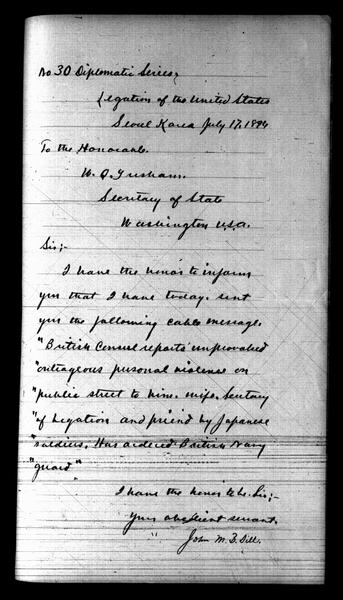 No 30 Diplomatic Series,
Legation of the United States
Seoul Korea July 17, 1894
To the Honorable.
W. Q. Gresham.
Secretary of State
Washington U.S.A.
Sir;-
I have the honor to inform
you that I have today. sent
you the following cable message.
"British Consul reports unprovoked
"outrageous personal violence on
"public street to him. wife. Secretary
"of Legation and friend by Japanese
"soldiers, Has ordered British Navy
"guard"
I have the honor to be. Sir;-
your obedient servant.
John M. B. Sill.